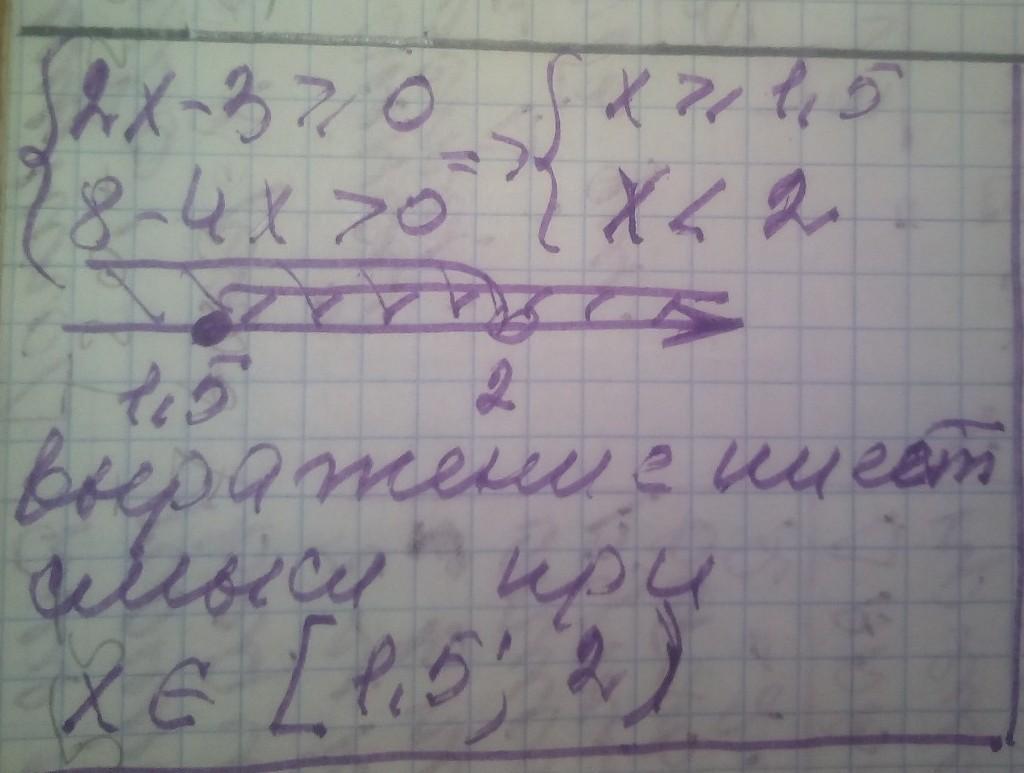 {2x-3⩾0 => {x⩾1,5
{8-4x>0 {x<2
1,5 2
выражение имеет
смысл при
x∈[1,5; 2)